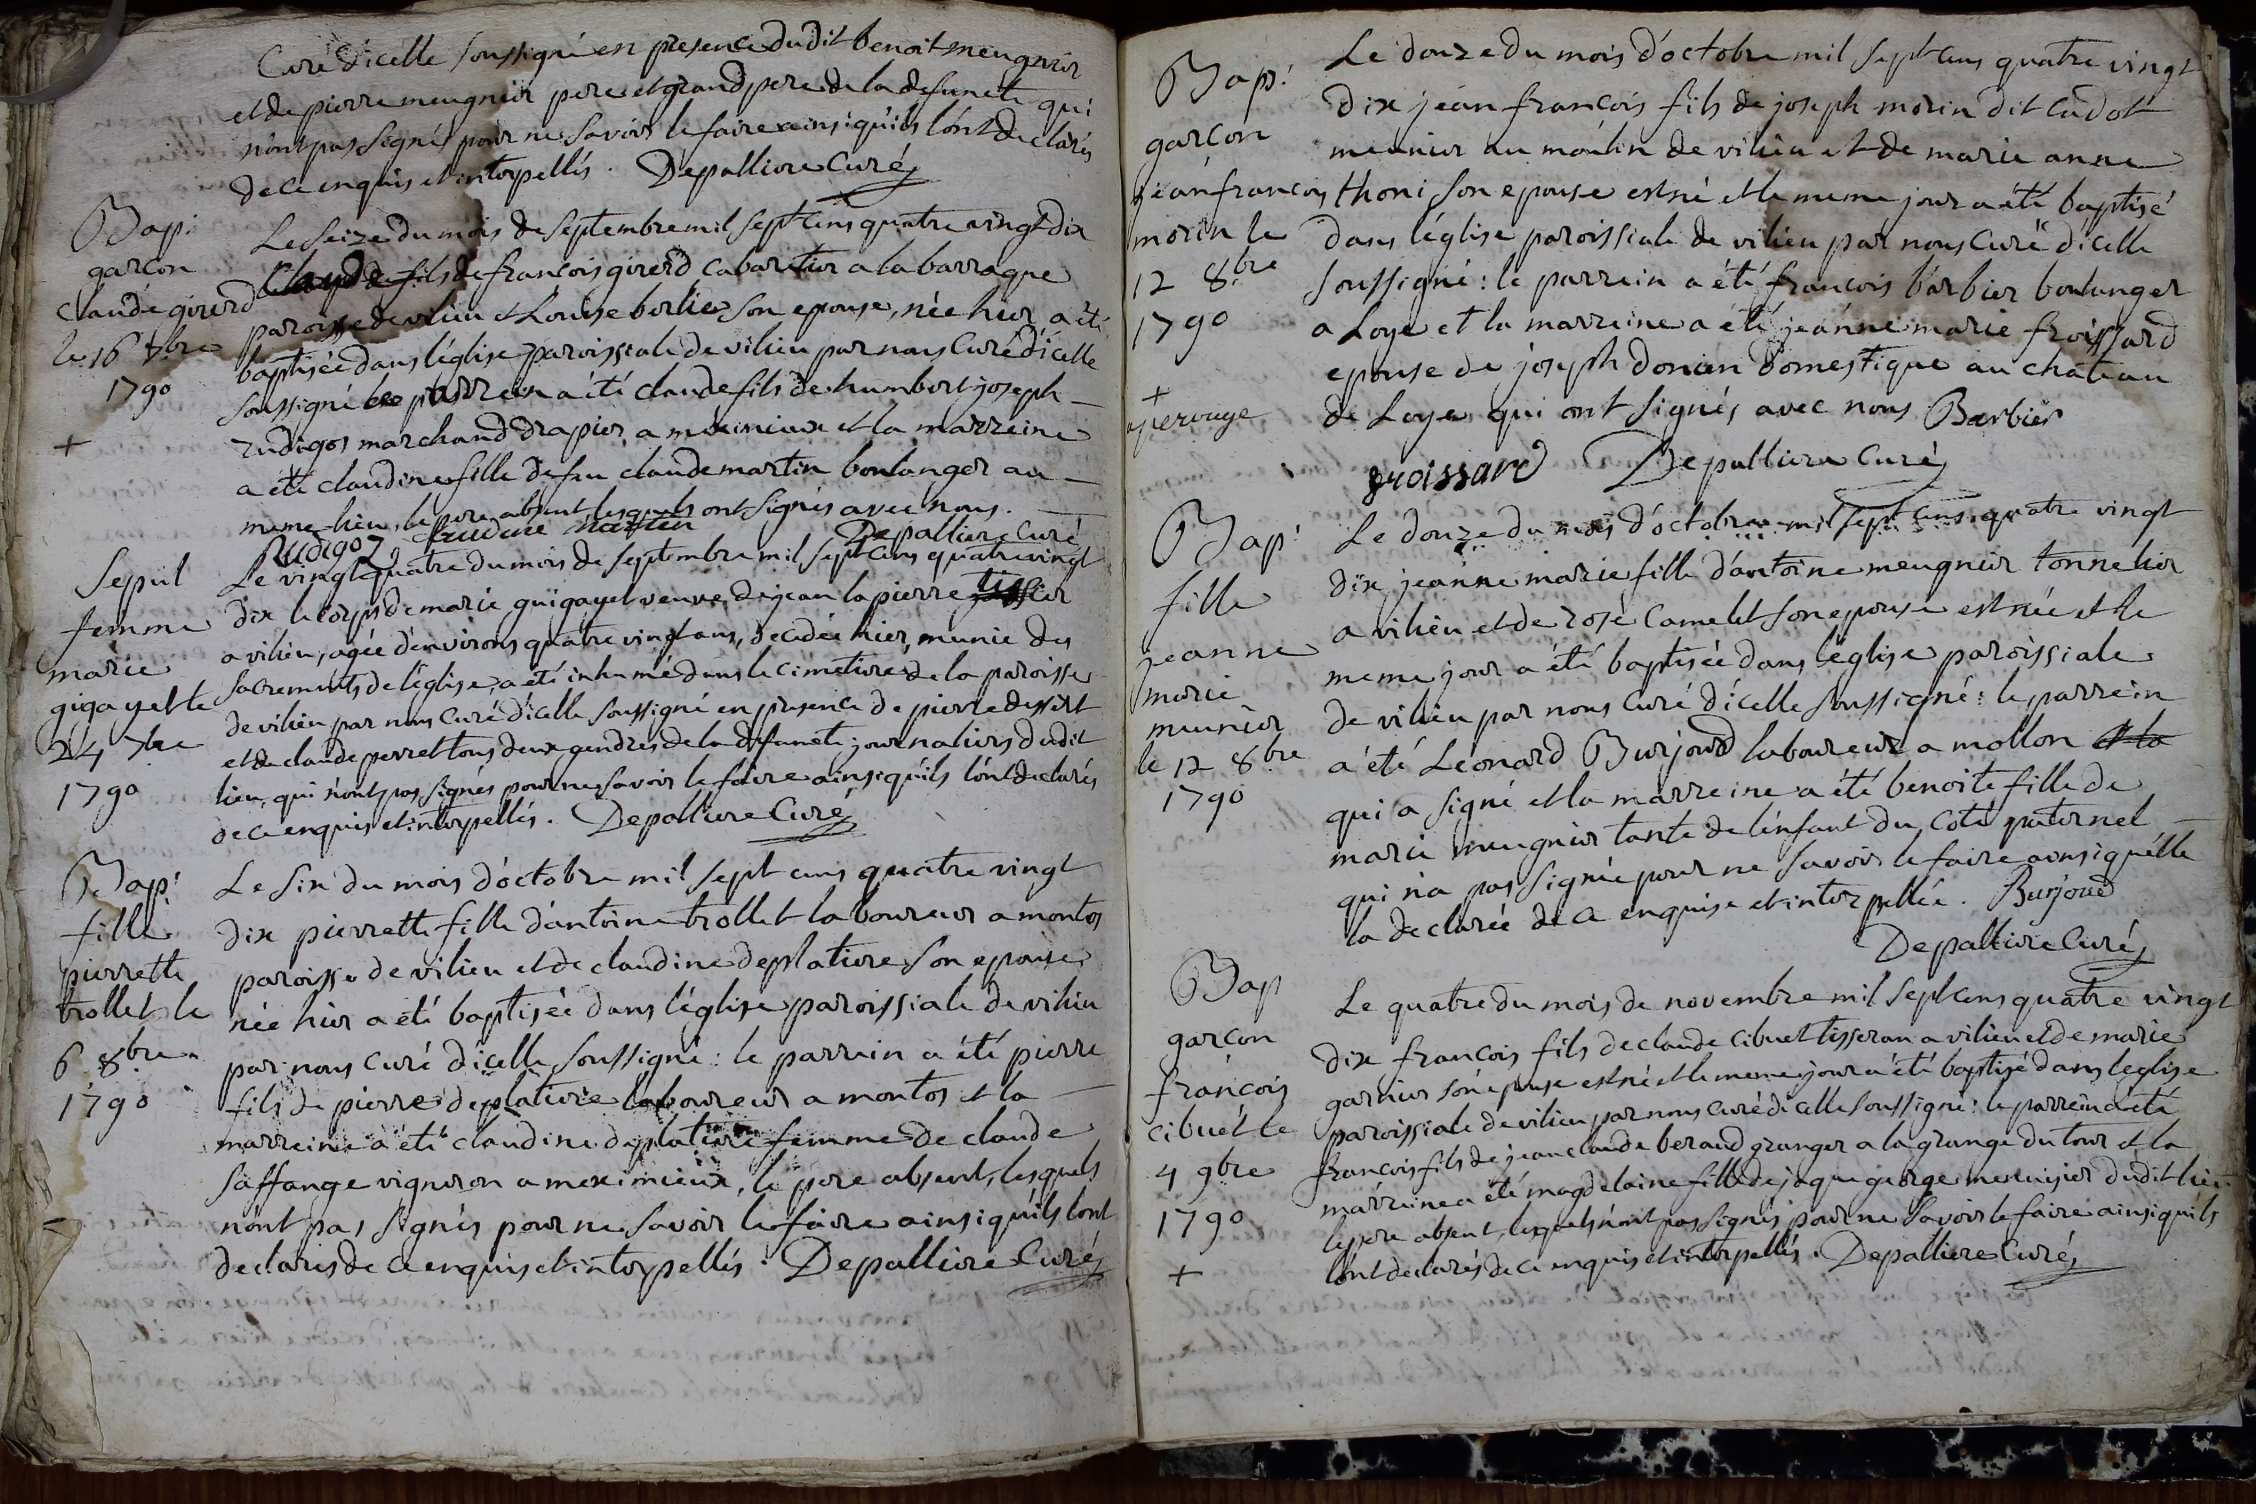 Curé d'icelle soussigné en presence dudit benoit meugnier
et de pierre meugnier pere et grand pere de la defuncte qui
n'ont pas signés pour ne savoir le faire ainsi qu'ils l'ont declarés
de ce enquis et interpellés. Depalliere Curé
Bap:
garçon
claude girerd
le 16 7bre
1790
+
Le seize du mois de septembre mil sept cens quatre vingt dix
Claude fils de francois girerd cabaretier a la barraque
paroisse de vilieu et Louise berlie son epouse, née hier a été
baptisée dans l'église paroissiale de vilieu par nous Curé d'icelle
soussigné le parrein a été claude fils de humbert joseph
rudigos marchand drapier a meximieux et la marreine
a été claudine fille de feu claude martin boulanger au
meme lieu, le pere absent, lesquels ont signés avec nous.
Rudigoz claudine martin Depalliere Curé
Sepul
femme
marie
gigayette
24 7bre
1790
Le vingt quatre du mois de septembre mil sept cens quatre vingt
dix le corps de marie guigayet veuve de jean la pierre tissier
a vilieu, agée d'environs quatre vingt ans, decedée hier, munie des
sacrements de l'église, a été inhumé dans le cimetiere de la paroisse
de vilieu par nous Curé d'icelle soussigné en presence de pierre dessert
et de claude perret tous deux gendres de la defuncte journaliers dudit
lieu, qui n'ont pas signés pour ne savoir le faire ainsi qu'ils l'ont declarés
de ce enquis et interpellés. Depalliere Curé
Bap:
fille
pierrette
trollet le
6 8bre
1790
Le six du mois d'octobre mil sept cens quatre vingt
dix pierrette fille d'antoine trollet laboureur a montos
paroisse de vilieu et de claudine deplatiere son epouse
née hier a été baptisée dans l'église paroissiale de vilieu
par nous curé d'icelle soussigné: le parrein a été pierre
fils de pierre deplatiere laboureur a montos et la
marreine a été claudine deplatiere femme de claude
saffange vigneron a meximieux, le pere absent, lesquels
n'ont pas signés pour ne savoir le faire ainsi qu'ils l'ont
declarés de ce enquis et interpellés. Depalliere Curé
Bap:
garçon
jean francois
morin le
12 8bre
1790
+
a perouge
Le douze du mois d'octobre mil sept cens quatre vingt
dix jean francois fils de joseph morin dit cadot
meunier au moulin de vilieu et de marie anne
thoni son epouse est né et le meme jour a été baptisé
dans l'église paroissiale de vilieu par nous Curé d'icelle
soussigné: le parrein a été francois barbier boulanger
a Loye et la marreine a été jeanne marie froissard
epouse de joseph donien domestique au chateau
de Loye qui ont signés avec nous Barbier
froissard Depalliere Curé
Bap:
fille
jeanne
marie
meunier
le 12 8bre
1790
Le douze du mois d'octobre mil sept cens quatre vingt
dix jeanne marie fille d'antoine meugnier tonnelier
a vilieu et de rose Camelet son epouse est née et le
meme jour a été baptisée dans l'église paroissiale
de vilieu par nous Curé d'icelle soussigné: le parrein
a été Léonard Burjoud laboureur a mollon et la
qui a signé et la marreine a été benoite fille de
marie meugnier tante de l'enfant du coté paternel
qui n'a pas signée pour ne savoir le faire ainsi qu'elle
la declarée de ce enquise et interpellée. Burjoud
Depalliere Curé
Bap
garçon
françois
cibuet le
4 9bre
1790
+
Le quatre du mois de novembre mil sept cens quatre vingt
dix francois fils de claude cibuet tisseran a vilieu et de marie
garnier son epouse est né et le meme jour a été baptisé dans l'eglise
paroissiale de vilieu par nous curé d'icelle soussigné: le parrein a été
francois fils de jean claude beraud granger a la grange du tour et la
marreine a été magdelaine fille de jaque george menuisier dudit lieu
le pere absent, lesquels n'ont pas signés pour ne savoir le faire ainsi qu'ils
l'ont declarés de ce enquis et interpellés. Depalliere Curé